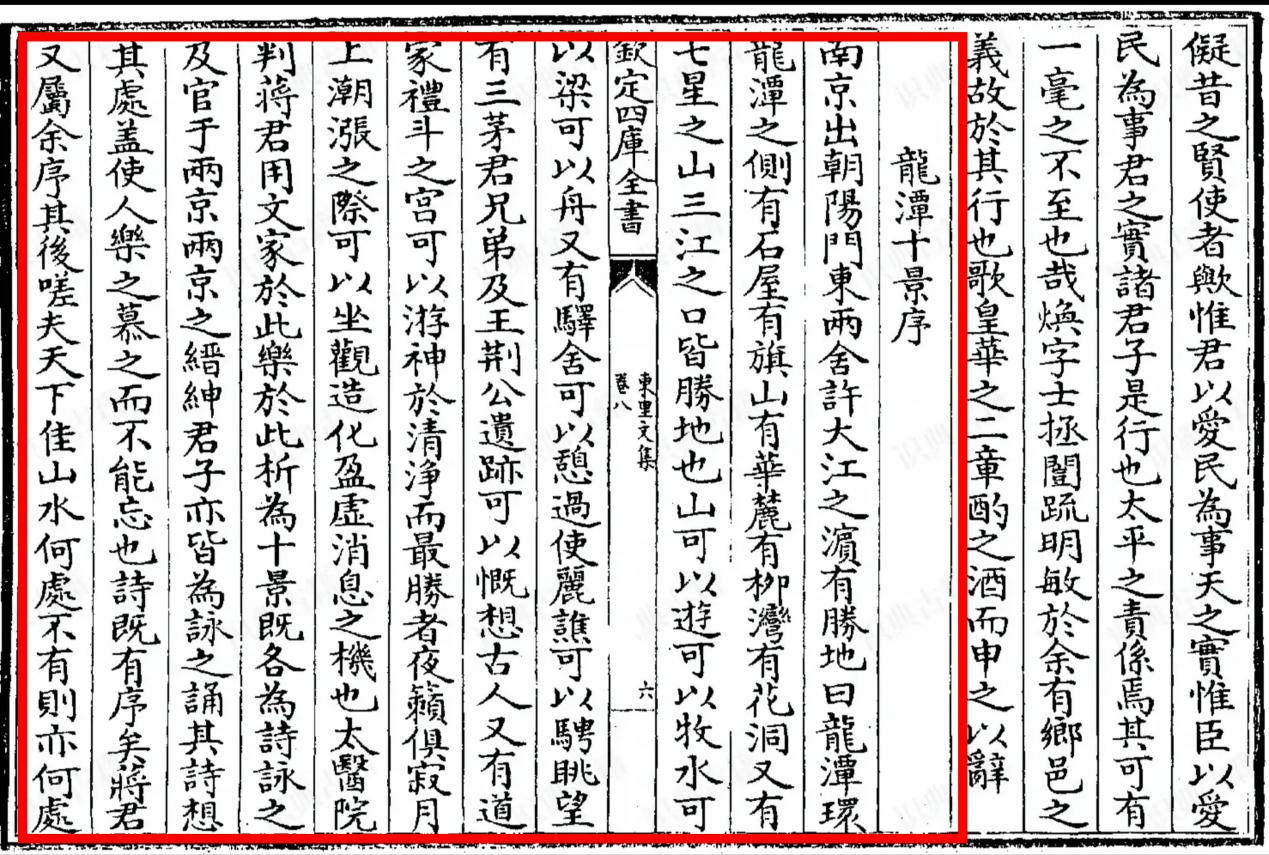 儗昔之賢使者歟惟君以愛民為事天之實惟臣以愛
民為事君之實諸君子是行也太平之責係焉其可有
一毫之不至也哉煥字士拯闓䟽明敏於余有鄉邑之
義故於其行也歌皇華之二章酌之酒而申之以辭
龍潭十景序
南京出朝陽門東兩舍許大江之濵有勝地曰龍潭環
龍潭之側有石屋有旗山有華麓有柳灣有花洞又有
七星之山三江之口皆勝地也山可以遊可以牧水可
欽定四庫全書
東里文集
卷八
六
以梁可以舟又有驛舍可以憩過使麗譙可以騁眺望
有三茅君兄弟及王荆公遺跡可以慨想古人又有道
家禮斗之宫可以游神於清淨而最勝者夜籟俱寂月
上潮漲之際可以坐觀造化盈虛消息之機也太醫院
判蔣君用文家於此樂於此析為十景既各為詩詠之
及官于兩京兩京之縉紳君子亦皆為詠之誦其詩想
其處盖使人樂之慕之而不能忘也詩既有序矣蔣君
又屬余序其後嗟夫天下佳山水何處不有則亦何處